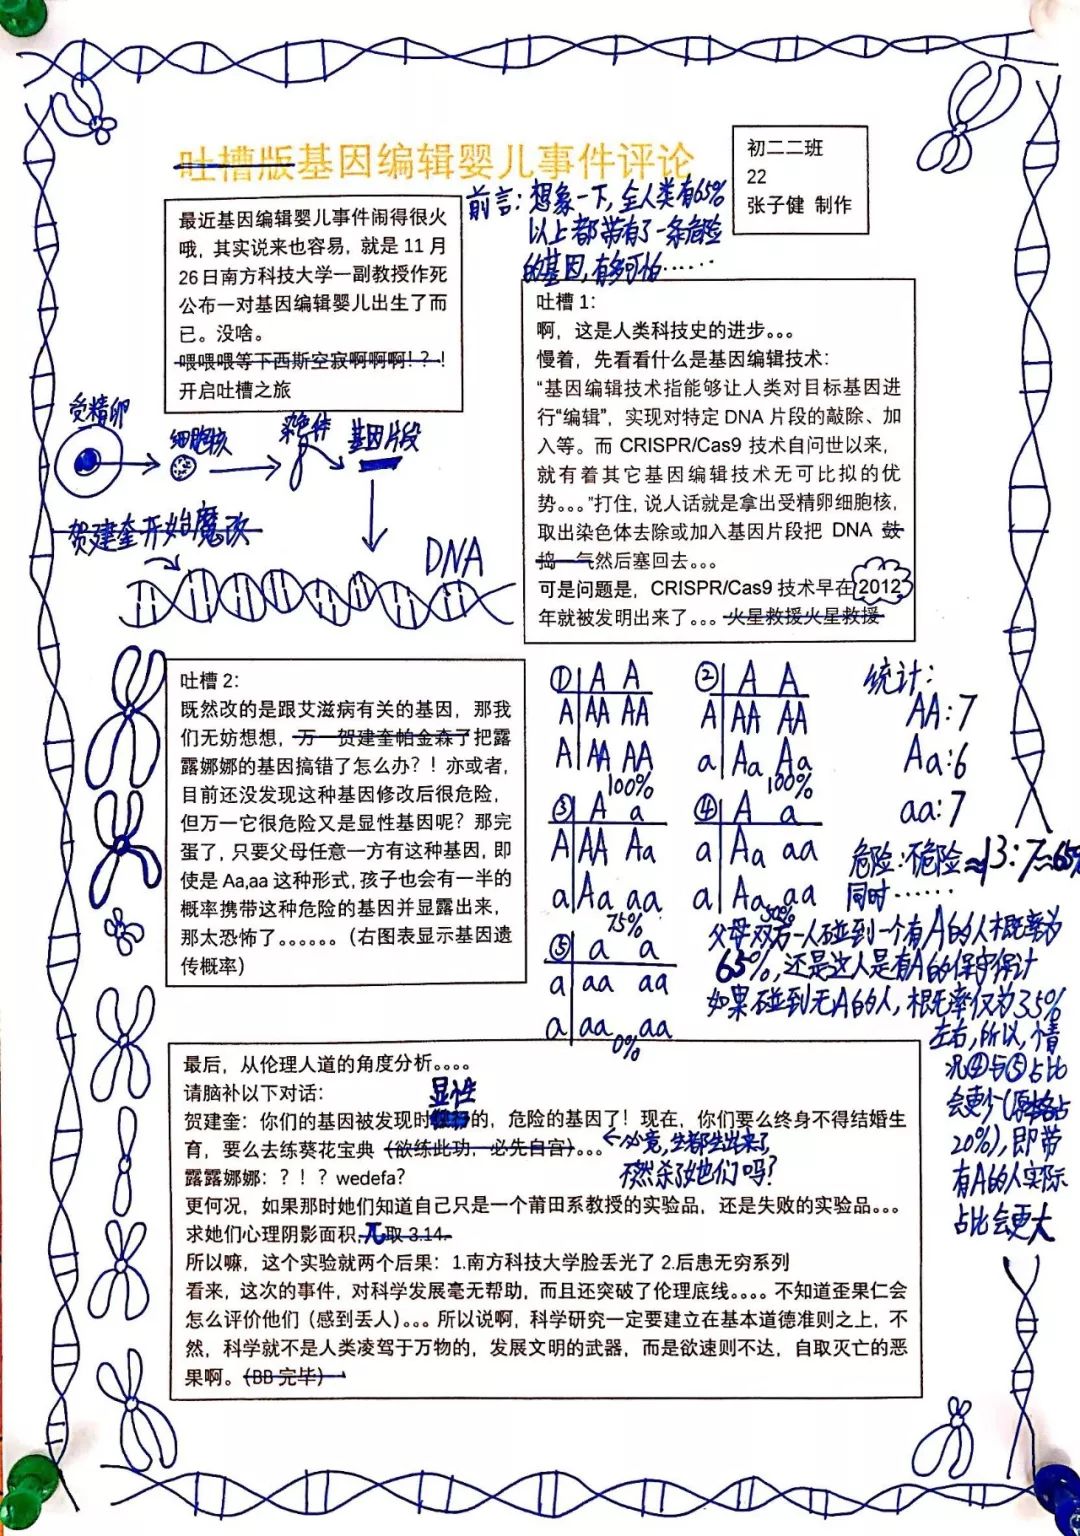 吐槽版基因编辑婴儿事件评论
初二二班
22
张子健 制作
前言：想象一下，全人类有65%
以上都带有了一条危险
的基因，有多可怕……
最近基因编辑婴儿事件闹得很火
哦，其实说来也容易，就是 11 月
26 日南方科技大学一副教授作死
公布一对基因编辑婴儿出生了而
已。没啥。
喂喂喂等下西斯空寂啊啊啊！？！
开启吐槽之旅
吐槽 1：
啊，这是人类科技史的进步。。。
慢着，先看看什么是基因编辑技术：
“基因编辑技术指能够让人类对目标基因进
行“编辑”，实现对特定 DNA 片段的敲除、加
入等。而 CRISPR/Cas9 技术自问世以来，
就有着其它基因编辑技术无可比拟的优
势。。。”打住，说人话就是拿出受精卵细胞核，
取出染色体去除或加入基因片段把 DNA 鼓
捣一气然后塞回去。。。
可是问题是，CRISPR/Cas9 技术早在 2012
年就被发明出来了。。。火星救援火星救援
受精卵
细胞核
染色体
基因片段
贺建奎开始魔改
DNA
吐槽 2：
既然改的是跟艾滋病有关的基因，那我
们无妨想想，万一贺建奎帕金森了把露
露娜娜的基因搞错了怎么办？！亦或者，
目前还没发现这种基因修改后很危险，
但万一它很危险又是显性基因呢？那完
蛋了，只要父母任意一方有这种基因，即
使是 Aa,aa 这种形式，孩子也会有一半的
概率携带这种危险的基因并显露出来，
那太恐怖了。。。。。。（右图表显示基因遗
传概率）
① A A
A AA AA
A AA AA
100%
② A A
A AA AA
a Aa Aa
100%
③ A a
A AA Aa
a Aa aa
75%
④ A a
a Aa aa
a Aa aa
50%
⑤ a a
a aa aa
a aa aa
0%
统计：
AA：7
Aa：6
aa：7
危险：不危险≈13：7≈65%
同时……
父母双方一人碰到一个有A的人概率为
65%，还是这人是有A的保守估计
如果碰到无A的人，概率仅为35%
左右，所以，情
况④与⑤占比
会更少（原格占
20%），即带
有A的人实际
占比会更大
最后，从伦理人道的角度分析。。。。
请脑补以下对话：
显性
贺建奎：你们的基因被发现时的，危险的基因了！现在，你们要么终身不得结婚生
育，要么去练葵花宝典（欲练此功，必先自宫）。。。
←必竟，生都生出来了，
不然杀了她们吗？
露露娜娜：？！？wedefa？
更何况，如果那时她们知道自己只是一个莆田系教授的实验品，还是失败的实验品。。。
求她们心理阴影面积，π取 3.14.
所以嘛，这个实验就两个后果：1.南方科技大学脸丢光了 2.后患无穷系列
看来，这次的事件，对科学发展毫无帮助，而且还突破了伦理底线。。。。不知道歪果仁会
怎么评价他们（感到丢人）。。。所以说啊，科学研究一定要建立在基本道德准则之上，不
然，科学就不是人类凌驾于万物的，发展文明的武器，而是欲速则不达，自取灭亡的恶
果啊。（BB 完毕）